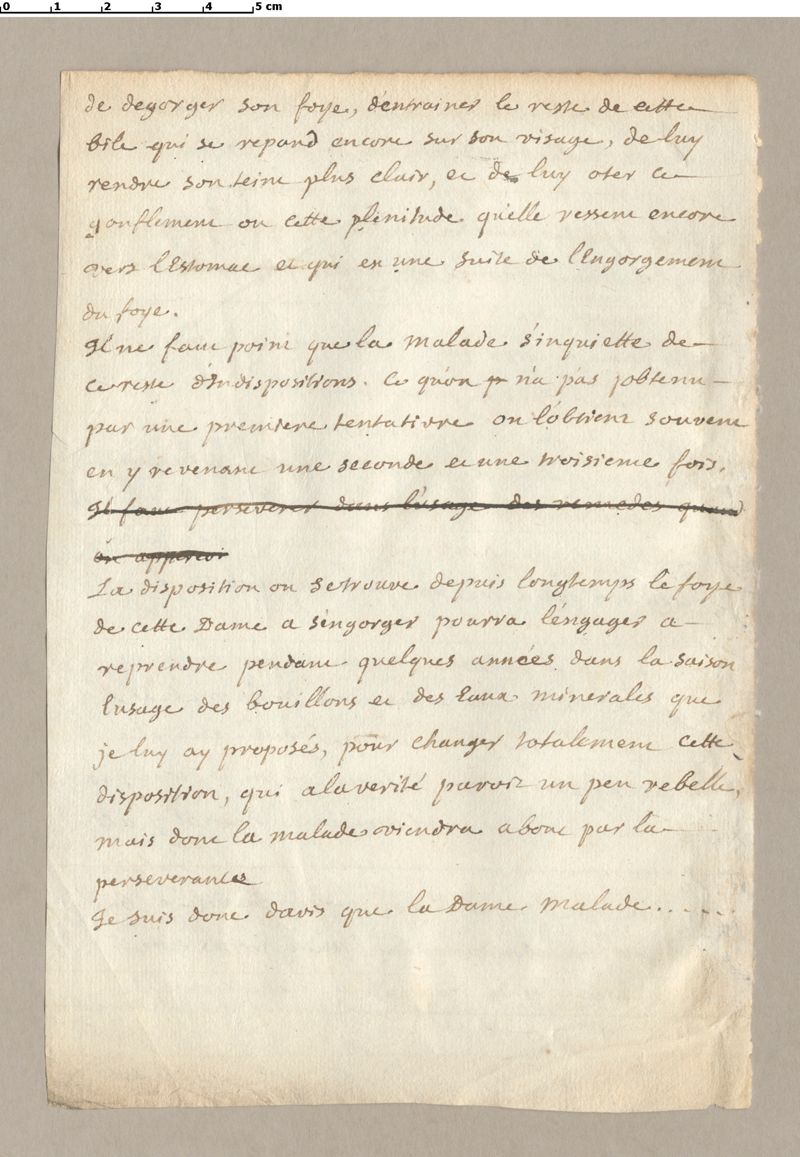 0 1 2 3 4 5 cm
de degorger son foye, d'entrainer le reste de cette
bile qui se repand encore sur son visage, de luy
rendre son teint plus clair, et de luy oter ce
gonflement ou cette plenitude qu'elle ressent encore
vers l'Estomac et qui est une suite de l'Engorgement
du foye.
Il ne faut point que la malade s'inquiette de
ce reste d'Indispositions. Ce qu'on n'a pas obtenu
par une premiere tentative on l'obtient souvent
en y revenant une seconde et une troisieme fois.
Il faut perseverer dans l'usage des remedes quand
on apperçoi
La disposition ou se trouve depuis longtemps le foye
de cette Dame a s'engorger pourra l'engager a
reprendre pendant quelques années dans la saison
l'usage des bouillons et des Eaux minerales que
je luy ay proposés, pour changer totalement cette
disposition, qui a la verité paroit un peu rebelle,
mais dont la malade viendra a bout par la
perseverance
Je suis donc d'avis que la Dame malade......